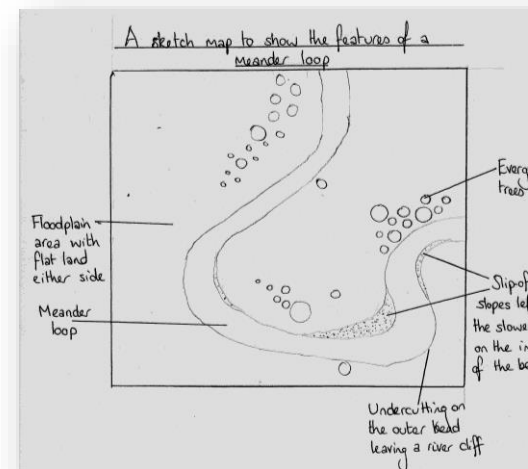 A sketch map to show the features of a
Meander loop
Floodplain
area with
flat land
either side
Meander
loop
trees
slopes
the
on the
of the
Undercutting on
the outer bend
leaving a river cliff